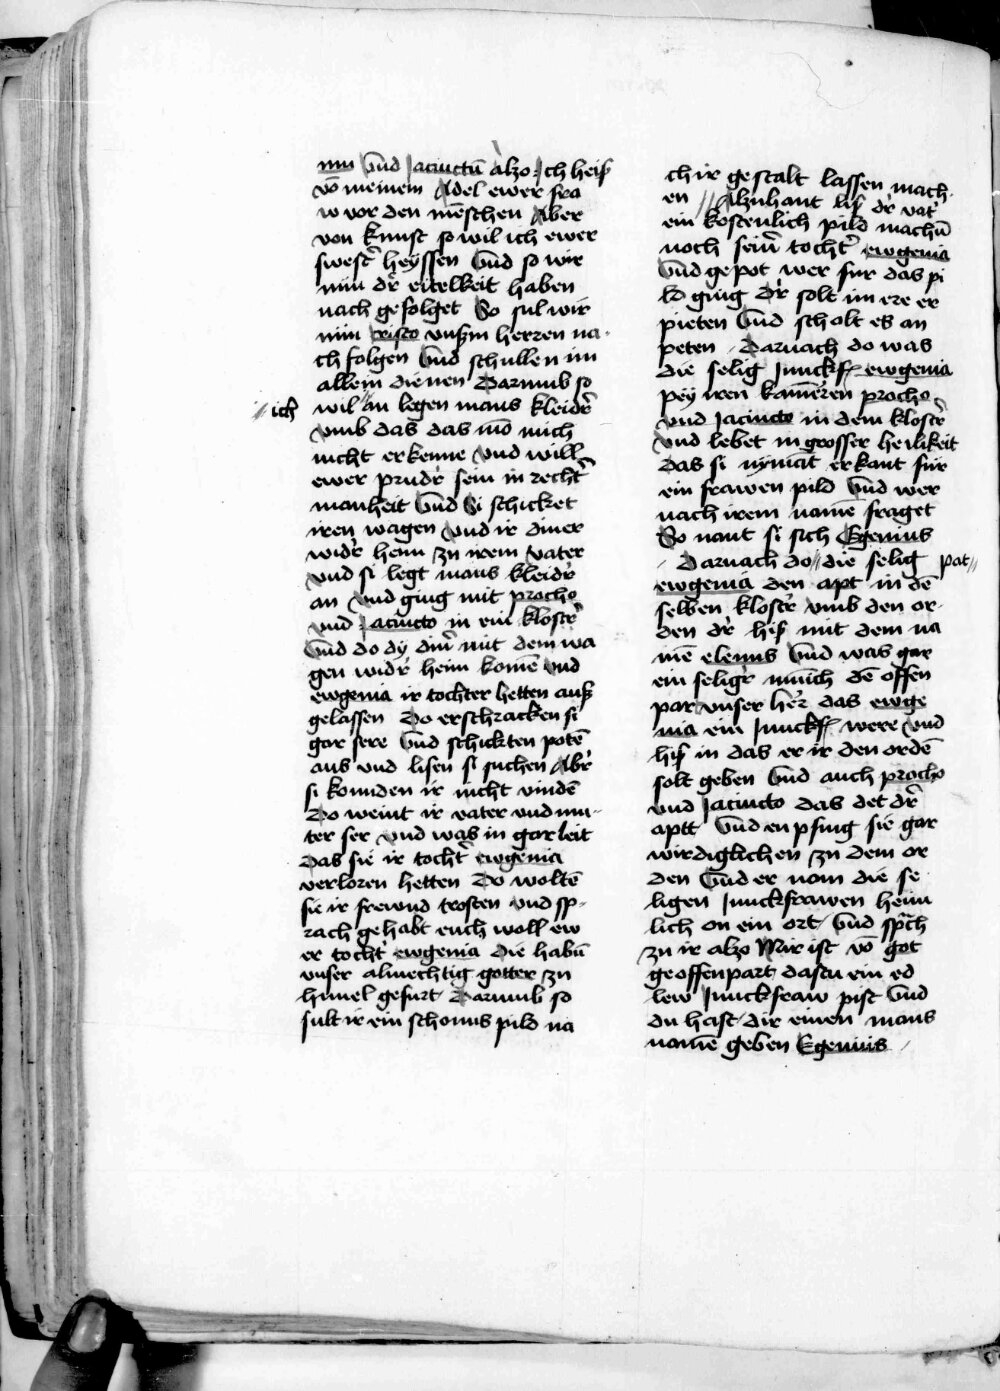 num Vnd Jacinctū Alzo Ich heiß
vō meinem Adel ewer fra
w vor den mēschen Aber
von kunst so wil ich ewer
swest' heyssen Vnd so wir
nun d'r eitelkeit haben
nach gefolget So sul wir
nun cristo vnßm herren na
ch folgen Vnd schullen im
allem dienen Darumb so
wil // an legen mans kleid'r
// ich
vmb das das mō mich
nicht erkenne Vnd will
ewer prud'r sein in recht'
manheit Vnd Si schicket
iren wagen Vnd ir diner
wid'r heim zu irem vater
vnd si legt mans kleid'r
an Vnd ging mit procho
vnd Jacincto in ein klost'r
Vnd do dy din' mit dem wa
gen wid'r heim komē Vnd
ewgenia ir tochter hetten auß
gelassen Do erschracken si
gar sere Vnd schickten potē
aus vnd lisen si suchen Ab'r
si konnden ir nicht vindē
Do weint ir vater vnd mu
ter ser Vnd was in gar leit
Das sie ir tocht' ewgenia
verloren hetten Do woltē
sie ir frewnd trosten Vnd sp
rach gehabt euch woll ew
er tocht' ewgenia die habū
vnser almechtig gotter zu
himel gefurt Darumb so
sult ir ein schonus pild na
ch ir gestalt lassen mach
en // Alzuhant liß d'r vat'
ein kostenlich pild machū
noch sein' tocht' ewgenia
Vnd gepot wer fur das pi
ld ging d'r solt im ere er
pieten Vnd scholt es an
peten Darnach do was
die selig Junckf ewgenia
pey iren kamēren procho
vnd Jacincto in dem klost'r
Vnd lebet in grosser heilikeit
das si nymāt erkant für
ein frawen pild Vnd wer
nach irem namē fraget
So nant si sich Egenius
Darnach do // die selig pat //
ewgenia den apt in dē
selben klost'r vmb den or
den d'r hiß mit dem na
mē elenus Vnd was gar
ein selig'r münich dē offen
par vnser her'r das ewge
nia ein Junckf were Vnd
hiß in das er ir den ordē
solt geben Vnd auch procho
vnd Jacincto das det d'r
aptt Vnd enpfing sie gar
wirdiglichen zu dem or
den Vnd er nam die se
ligen Junckfrawen heim
lich on ein ort Vnd sprach
zu ir alzo Mir ist vō got
geoffenpart dastu ein ed
lew Junckfraw pist Vnd
du hast dir einen mans
namē geben Egenius